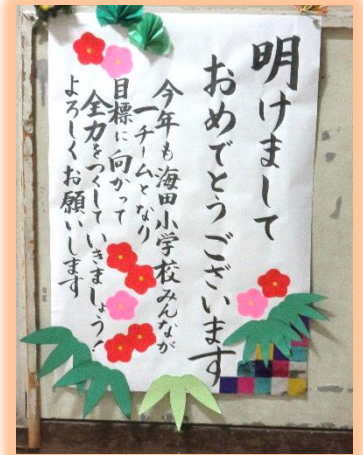 明けまして
おめでとうございます
今年も海田小学校みんなが
一チームとなり
目標に向かって
全力をつくしていきましょう！
よろしくお願いします